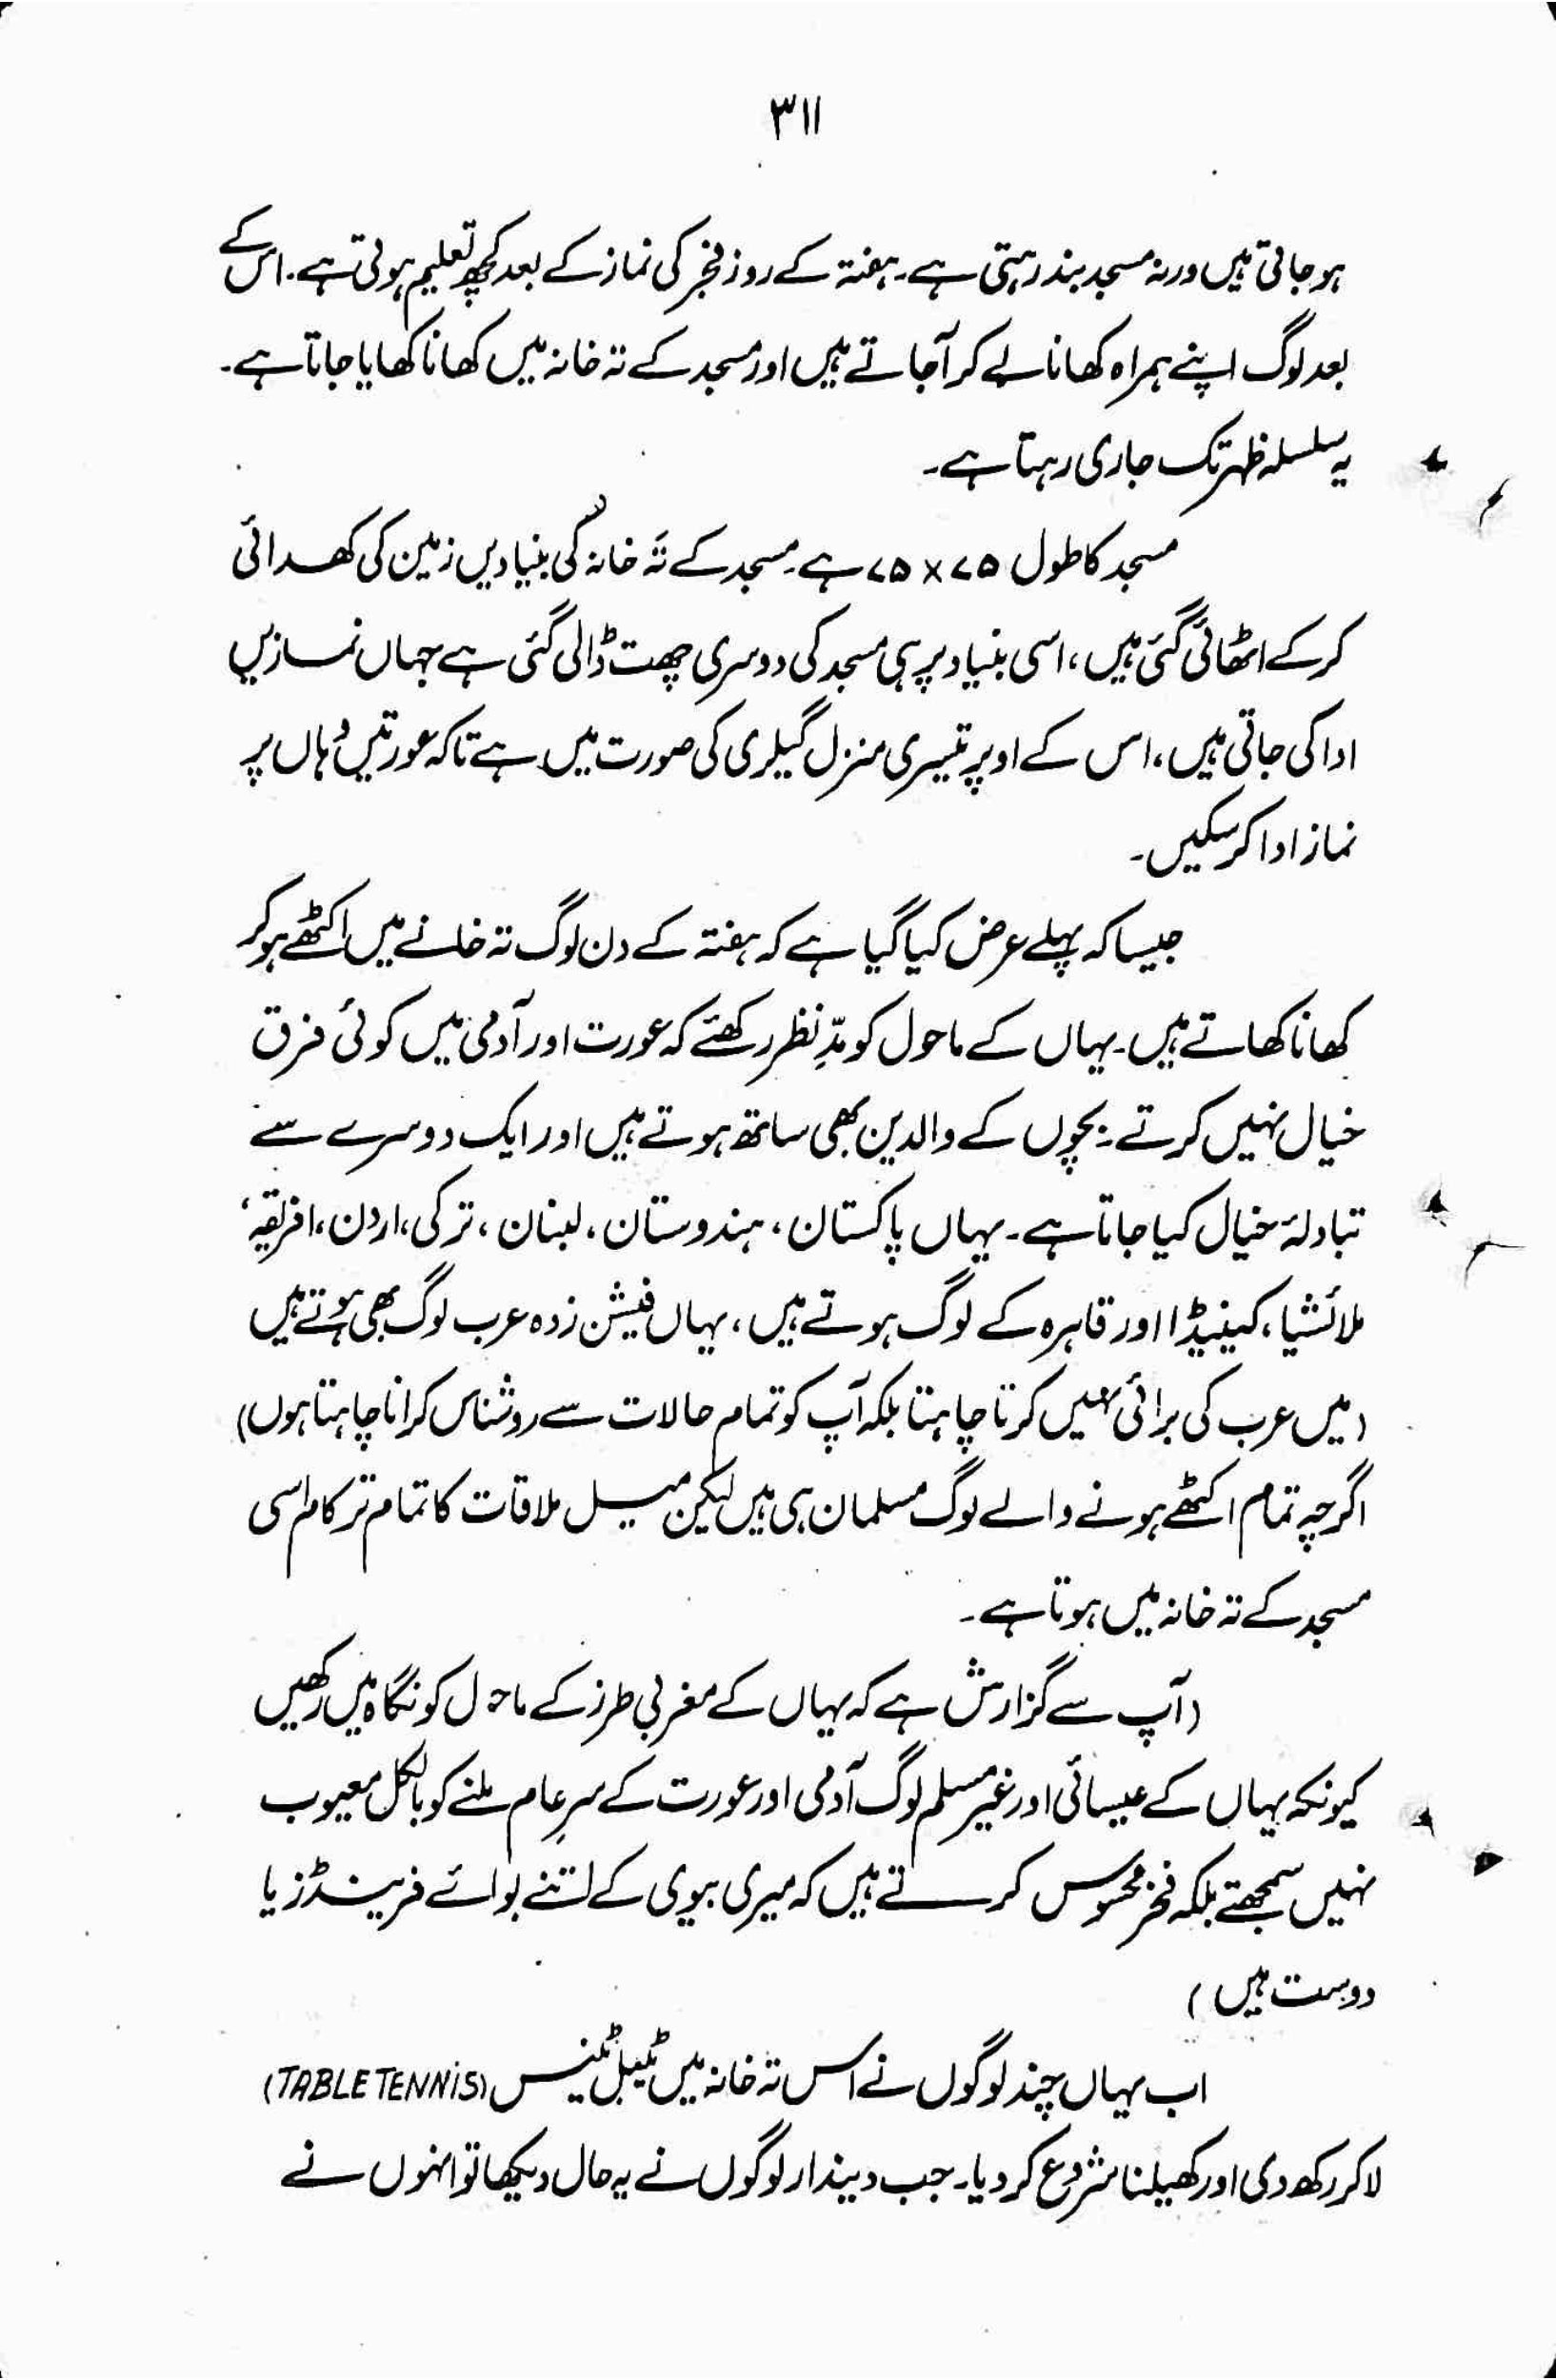 ۳۱۱
ہو جاتی ہیں ورنہ مسجد بند رہتی ہے۔ ہفتہ کے روز فجر کی نماز کے بعد کچھ تعلیم ہوتی ہے۔ اس کے
بعد لوگ اپنے ہمراہ کھانا لے کر آجاتے ہیں اور مسجد کے تہ خانہ میں کھانا کھایا جاتا ہے۔
یہ سلسلہ ظہر تک جاری رہتا ہے۔
مسجد کا طول ۷۵ × ۷۵ ہے۔ مسجد کے تہ خانہ کی بنیادیں زمین کی کھدائی
کر کے اٹھائی گئی ہیں، اسی بنیاد پر ہی مسجد کی دوسری چھت ڈالی گئی ہے جہاں نمازیں
ادا کی جاتی ہیں، اس کے اوپر تیسری منزل گیلری کی صورت میں ہے تاکہ عورتیں وہاں پر
نماز ادا کر سکیں۔
جیسا کہ پہلے عرض کیا گیا ہے کہ ہفتہ کے دن لوگ تہ خانے میں اکٹھے ہو کر
کھانا کھاتے ہیں۔ یہاں کے ماحول کو مدِّ نظر رکھئے کہ عورت اور آدمی میں کوئی فرق
خیال نہیں کرتے۔ بچوں کے والدین بھی ساتھ ہوتے ہیں اور ایک دوسرے سے
تبادلۂ خیال کیا جاتا ہے۔ یہاں پاکستان، ہندوستان، لبنان، ترکی، اردن، افریقہ،
ملائشیا، کینیڈا اور قاہرہ کے لوگ ہوتے ہیں، یہاں فیشن زدہ عرب لوگ بھی ہوتے ہیں
(میں عرب کی برائی نہیں کرنا چاہتا بلکہ آپ کو تمام حالات سے روشناس کرانا چاہتا ہوں)
اگرچہ تمام اکٹھے ہونے والے لوگ مسلمان ہی ہیں لیکن میل ملاقات کا تمام تر کام اسی
مسجد کے تہ خانہ میں ہوتا ہے۔
(آپ سے گزارش ہے کہ یہاں کے مغربی طرز کے ماحول کو نگاہ میں رکھیں
کیونکہ یہاں کے عیسائی اور غیر مسلم لوگ آدمی اور عورت کے سرِ عام ملنے کو بالکل معیوب
نہیں سمجھتے بلکہ فخر محسوس کرتے ہیں کہ میری بیوی کے اتنے بوائے فرینڈز یا
دوست ہیں)
اب یہاں چند لوگوں نے اس تہ خانہ میں ٹیبل ٹینس (TABLE TENNiS)
لا کر رکھ دی اور کھیلنا شروع کر دیا۔ جب دیندار لوگوں نے یہ حال دیکھا تو انہوں نے